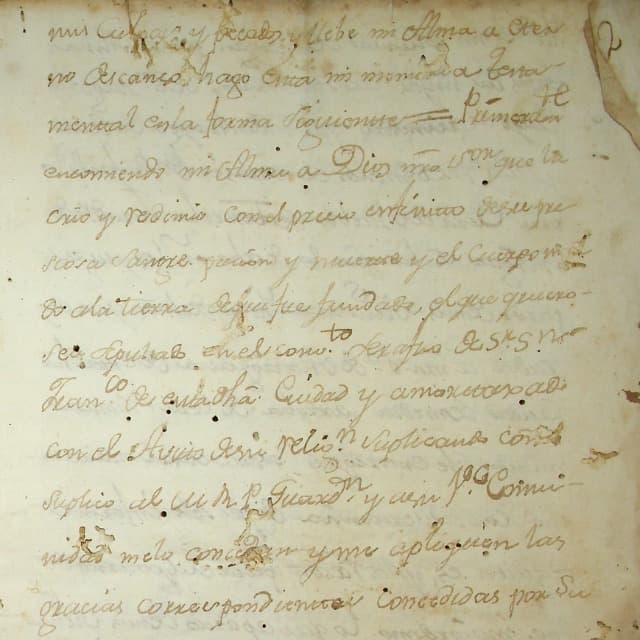 mis Culpas y pecados, y llebe mi Alma a eter
no descanço, hago esta mi memoria testa
mental en la forma siguiente = Primeramte
encomiendo mi Alma a Dios nro Sor que la
crio y redimio con el precio infinito de su pre
ciosa Sangre pasion y muerte y el Cuerpo
do a la tierra de que fue fundado, el que quiero
sea sepultado en el convto Serafico de Sr Sn
Franco de esta dha Ciudad y amortaxado
con el Avito de su religon suplicando como
suplico al M R P Guardn y a su Va Comu
nidad me lo concedan y me apliquen las
gracias correspondientes concedidas por Su